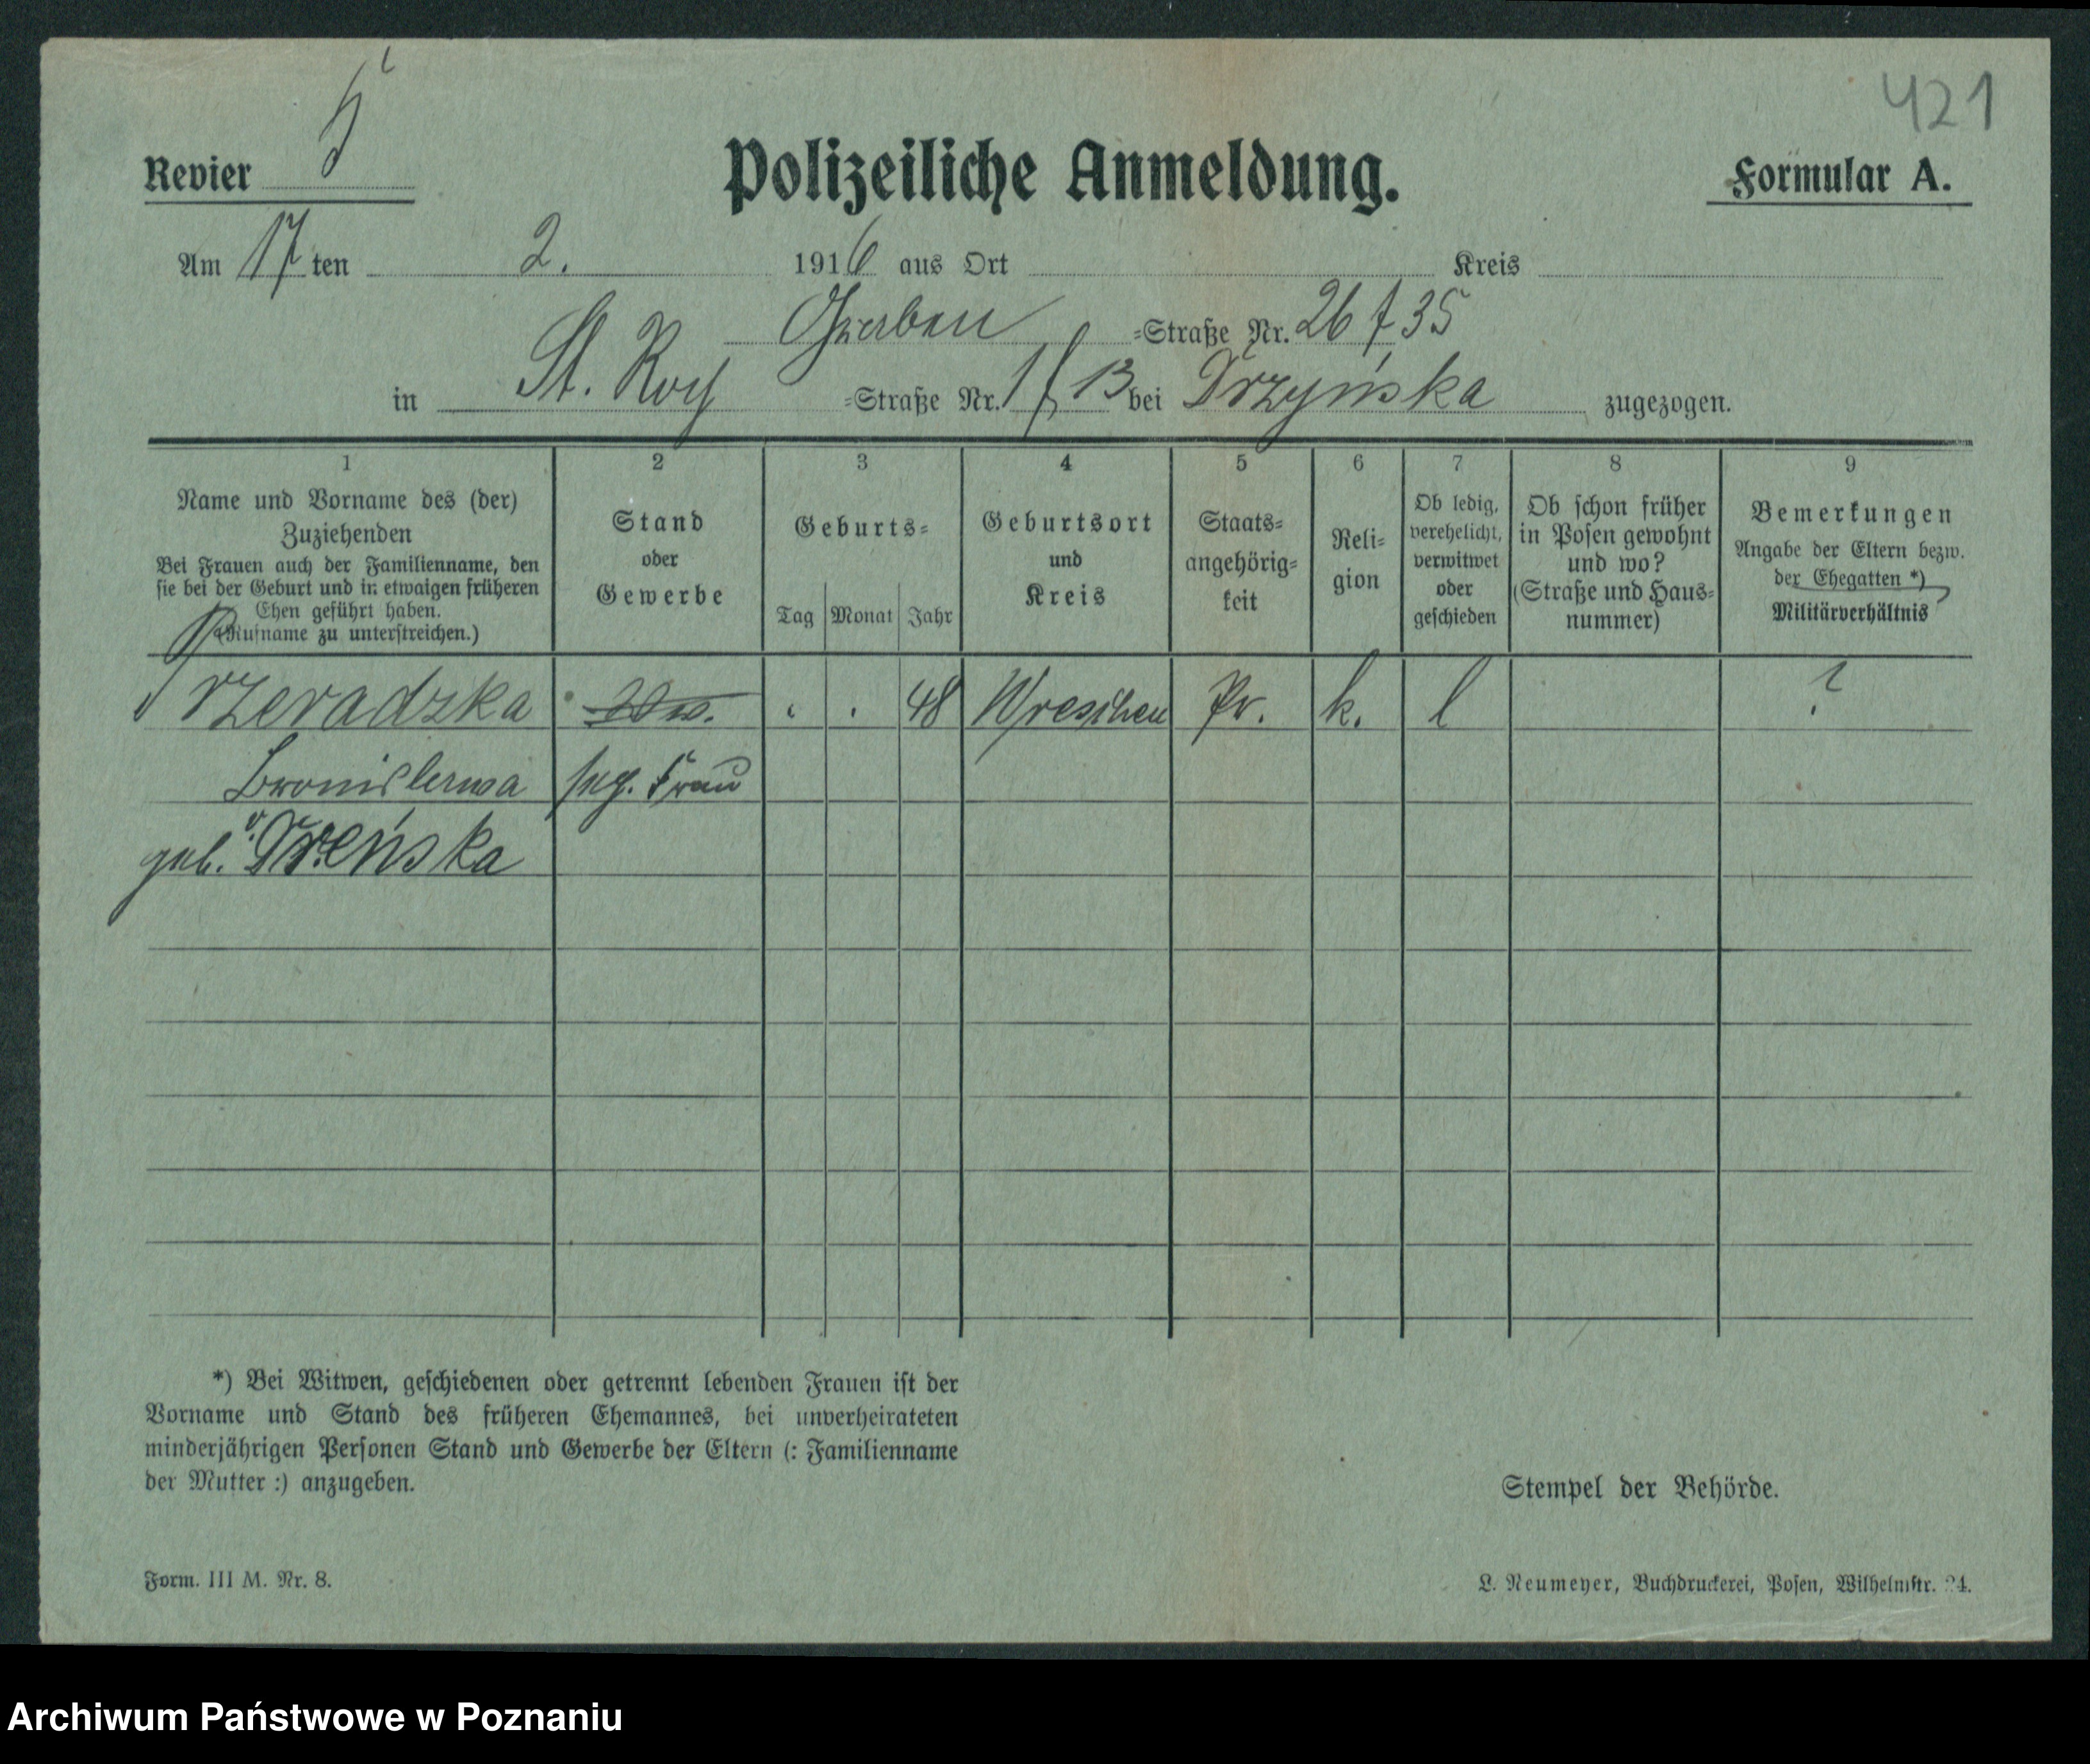 421
Revier 5
Polizeiliche Anmeldung.
Formular A.
Am 17 ten 2. 1916 aus Ort Kreis
Graben =Straße Nr. 26 f 35
in St. Roch =Straße Nr. 1 f 13 bei Drzyńska zugezogen.
1 2 3 4 5 6 7 8 9
Name und Vorname des (der) Zuziehenden
Bei Frauen auch der Familienname, den
sie bei der Geburt und in etwaigen früheren
Ehen geführt haben.
(Rufname zu unterstreichen.)
Stand
oder
Gewerbe
Geburts=
Tag Monat Jahr
Geburtsort
und
Kreis
Staats=
angehörig=
keit
Reli=
gion
Ob ledig,
verehelicht,
verwitwet
oder
geschieden
Ob schon früher
in Posen gewohnt
und wo?
(Straße und Haus=
nummer)
Bemerkungen
Angabe der Eltern bezw.
der Ehegatten *)
Militärverhältnis
Przeradzka 48 Wreschen Pr. k. l ?
Bronislawa Frau
geb.
*) Bei Witwen, geschiedenen oder getrennt lebenden Frauen ist der
Vorname und Stand des früheren Ehemannes, bei unverheirateten
minderjährigen Personen Stand und Gewerbe der Eltern (: Familienname
der Mutter :) anzugeben.
Stempel der Behörde.
Form. III M. Nr. 8.
L. Neumeyer, Buchdruckerei, Posen, Wilhelmstr. 24.
Archiwum Państwowe w Poznaniu